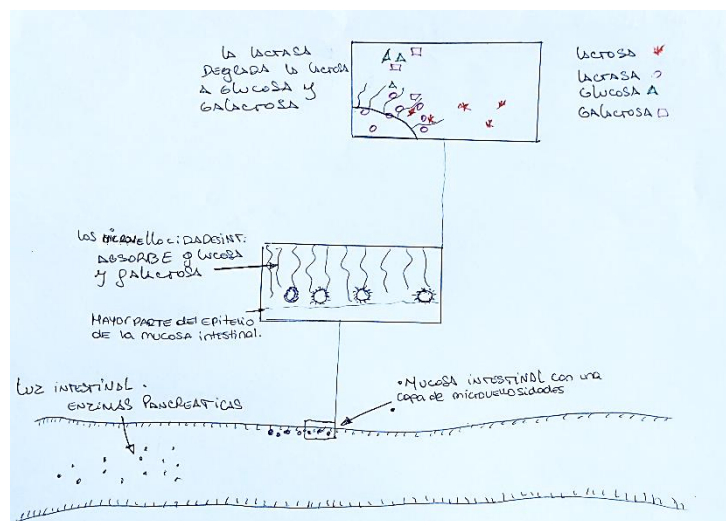 LA LACTASA
DEGRADA LA LACTOSA
A GLUCOSA y
GALACTOSA
LACTOSA
LACTASA
GLUCOSA
GALACTOSA
LOS MICROVELLOCIDADES INT.
ABSORBE GLUCOSA
y GALACTOSA
MAYOR PARTE DEL EPITELIO
DE LA MUCOSA INTESTINAL.
LUZ INTESTINAL.
ENZIMAS PANCREATICAS
• MUCOSA INTESTINAL con una
capa de microvellosidades